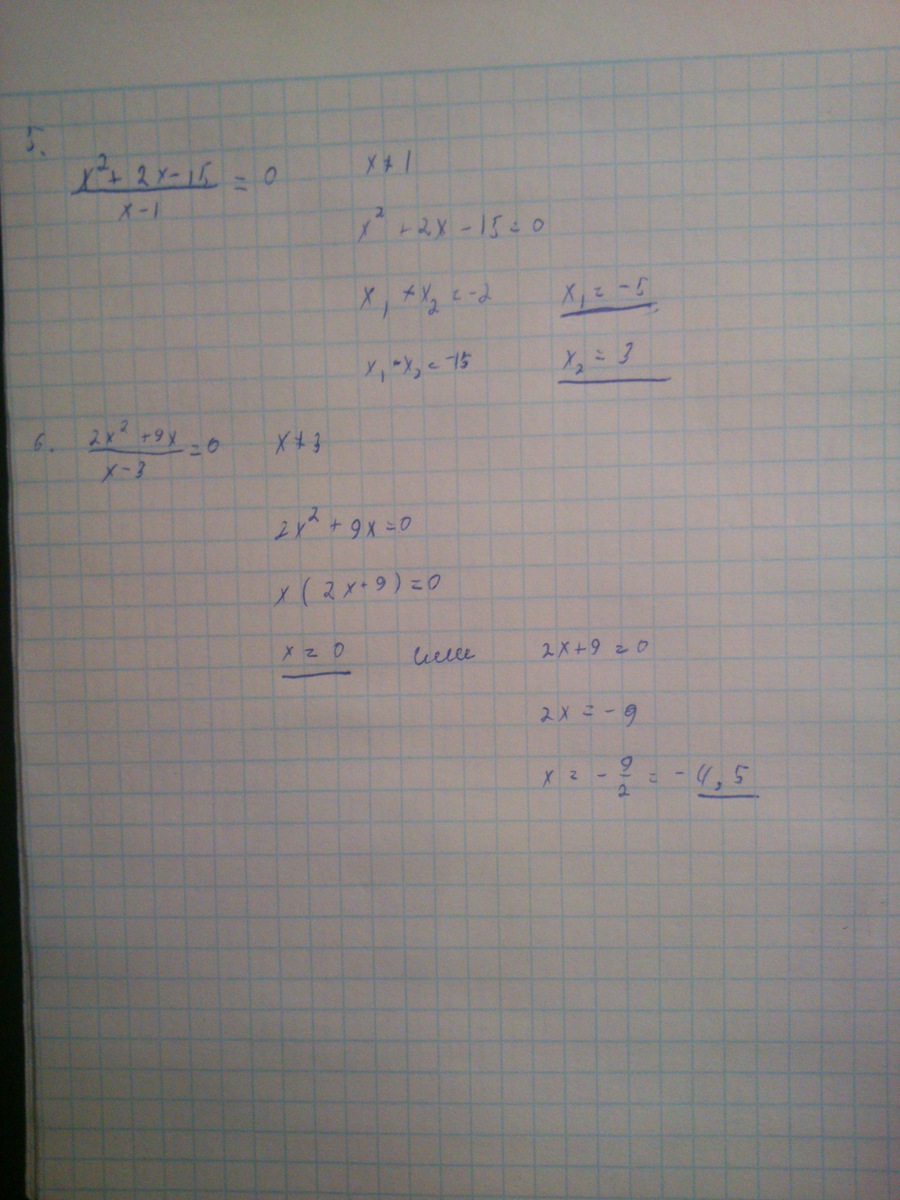 5.
x² + 2x - 15 / x - 1 = 0    x ≠ 1
x² + 2x - 15 = 0
x₁ + x₂ = -2    x₁ = -5
x₁ • x₂ = -15    x₂ = 3
6. 2x² + 9x / x - 3 = 0    x ≠ 3
2x² + 9x = 0
x ( 2x + 9 ) = 0
x = 0    или    2x + 9 = 0
2x = - 9
x = - 9/2 = - 4,5